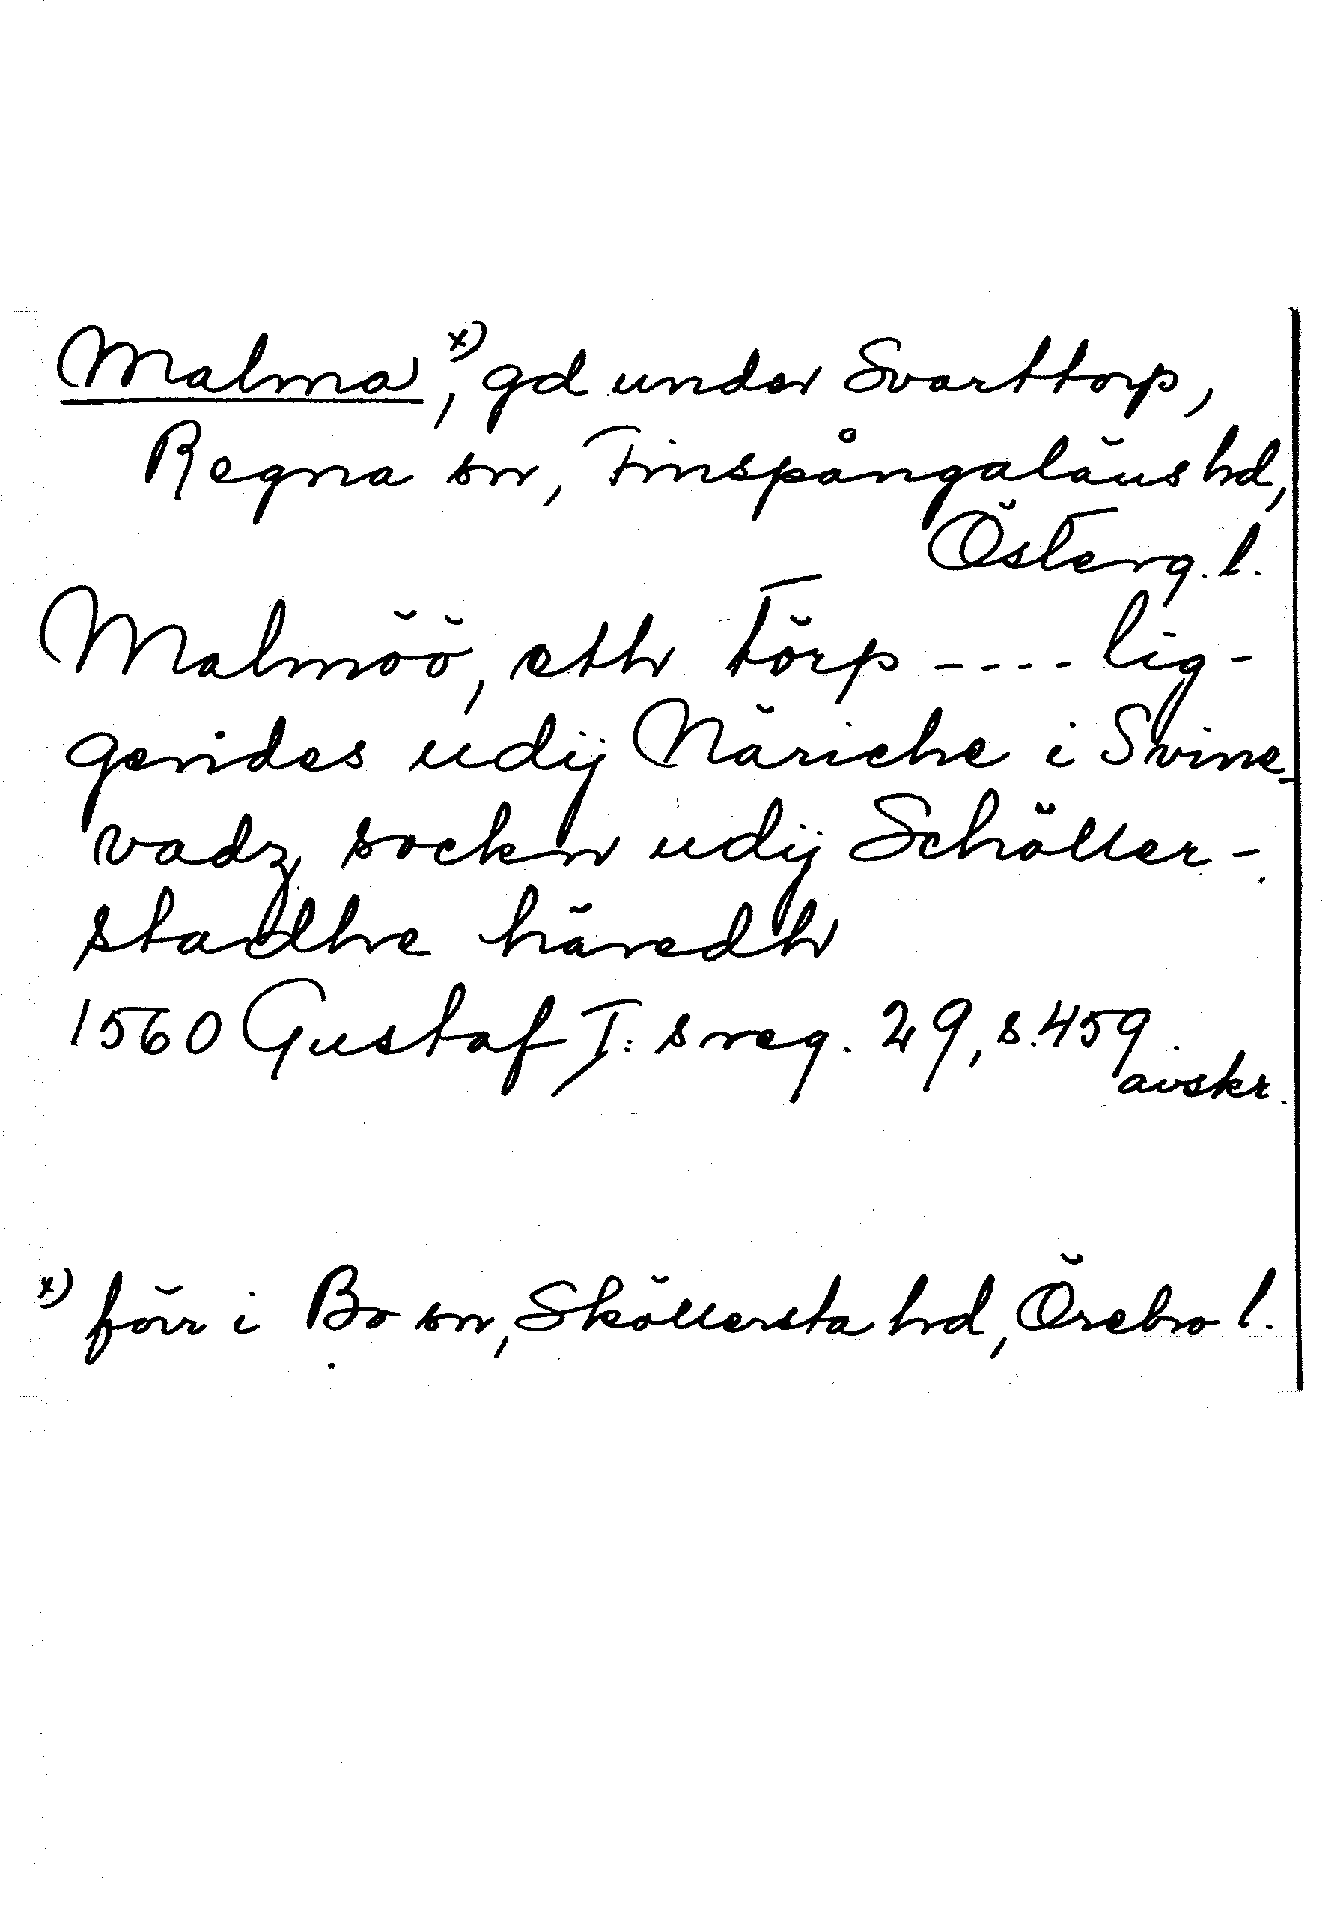 Malma x), gd under Svarttorp,
Regna sn, Finspångaläns hd,
Österg. l.
Malmöö, etth törp ---- lig-
gendes udij Näriche i Svine-
vadz sockn udij Schöller-
stadhe häredh
1560 Gustaf I:s reg. 29, s. 459.
avskr.
x) förr i Bo sn, Sköllersta hd, Örebro l.